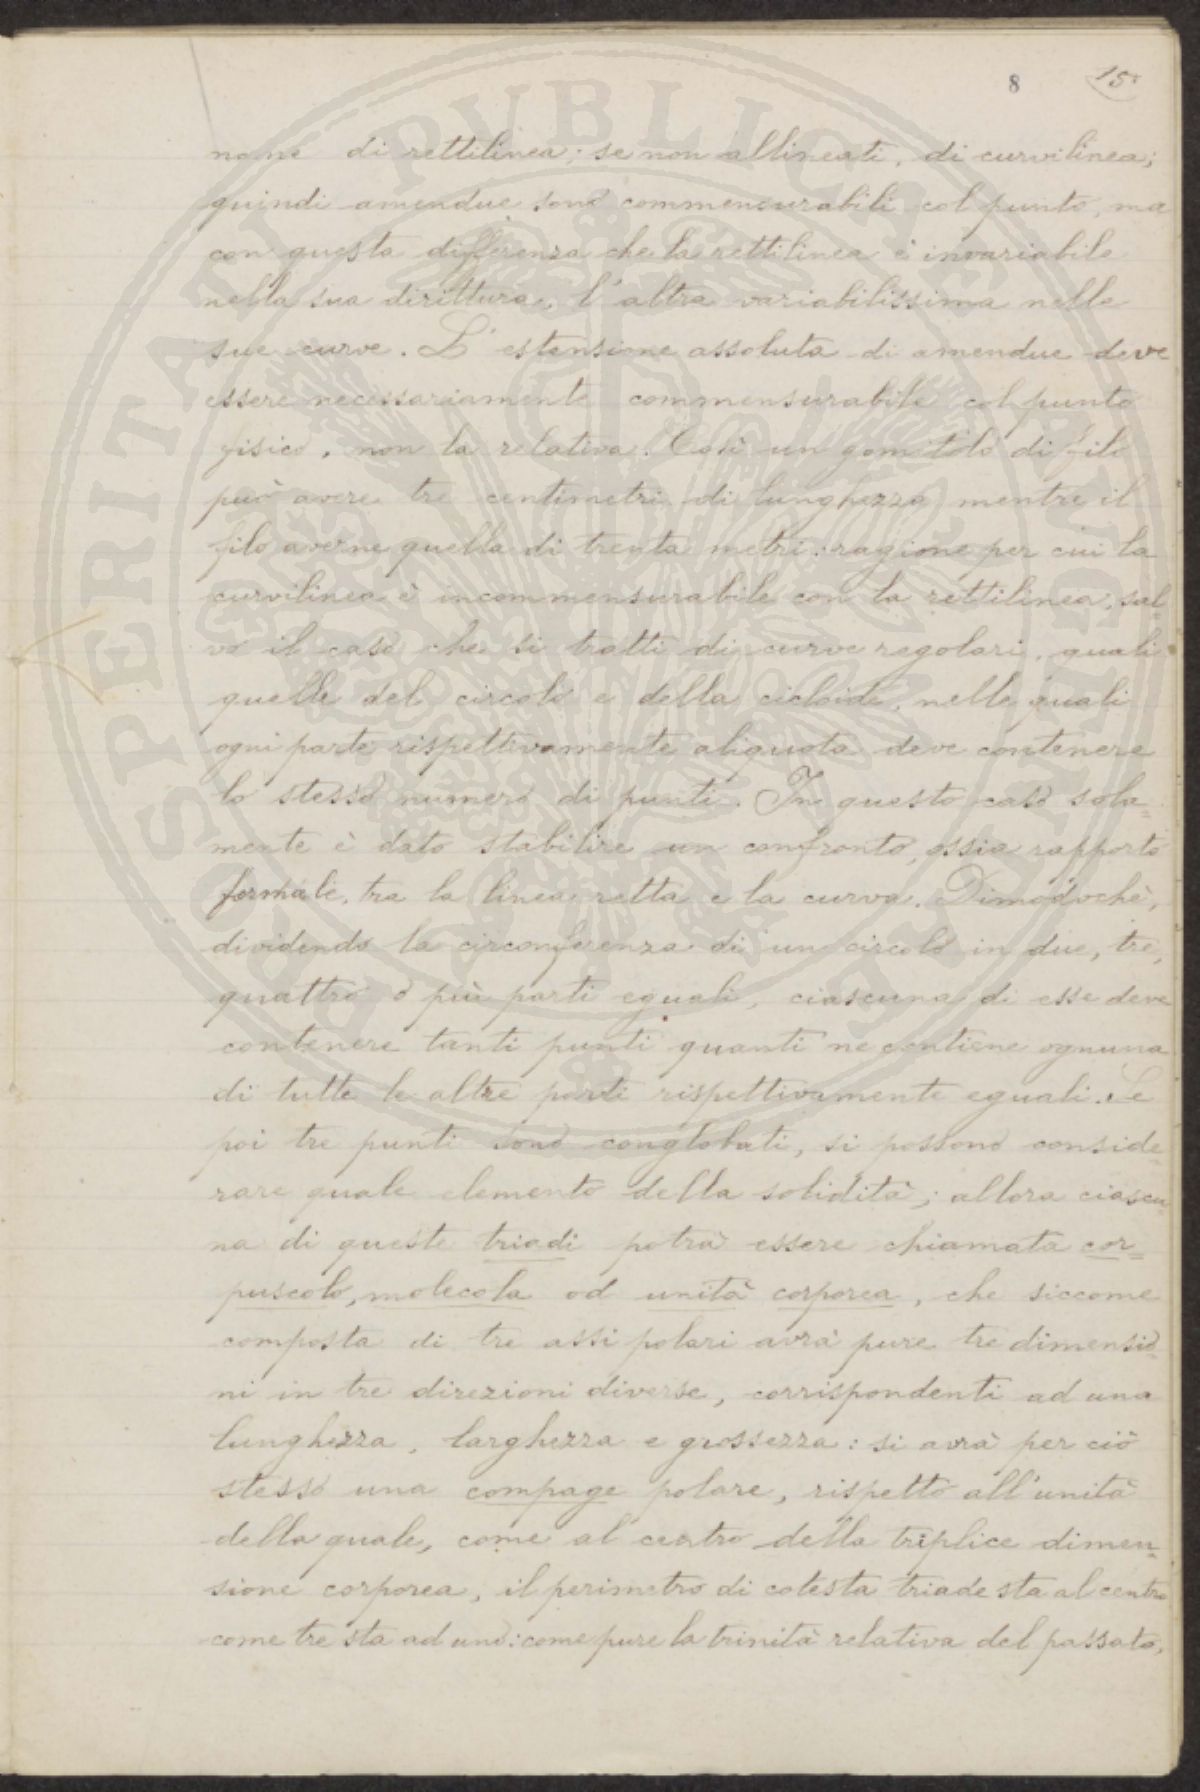 8 15
nome di rettilinea; se non allineati, di curvilinea;
quindi amendue sono commensurabili col punto, ma
con questa differenza che la rettilinea è invariabile
nella sua dirittura, l'altra variabilissima nelle
sue curve. L'estensione assoluta di amendue deve
essere necessariamente commensurabile col punto
fisico, non la relativa. Così un gomitolo di filo
può avere tre centimetri di lunghezza, mentre il
filo averne quella di trenta metri: ragione per cui la
curvilinea è incommensurabile con la rettilinea, sal-
vo il caso che si tratti di curve regolari, quali
quelle del circolo e della cicloide, nelle quali
ogni parte rispettivamente aliquota deve contenere
lo stesso numero di punti. In questo caso sola=
mente è dato stabilire un confronto, ossia rapporto
formale, tra la linea retta e la curva. Dimodochè,
dividendo la circonferenza di un circolo in due, tre,
quattro o più parti eguali, ciascuna di esse deve
contenere tanti punti quanti ne contiene ognuna
di tutte le altre parti rispettivamente eguali. Se
poi tre punti sono conglobati, si possono conside=
rare quale elemento della solidità; allora ciascu=
na di queste triadi potrà essere chiamata cor=
puscolo, molecola od unità corporea, che siccome
composta di tre assi polari avrà pure tre dimensio=
ni in tre direzioni diverse, corrispondenti ad una
lunghezza, larghezza e grossezza: si avrà per ciò
stesso una compage polare, rispetto all'unità
della quale, come al centro della triplice dimen=
sione corporea, il perimetro di cotesta triade sta al centro
come tre sta ad uno: come pure la trinità relativa del passato,
PROSPERITATI PUBLICAE AUGENDAE